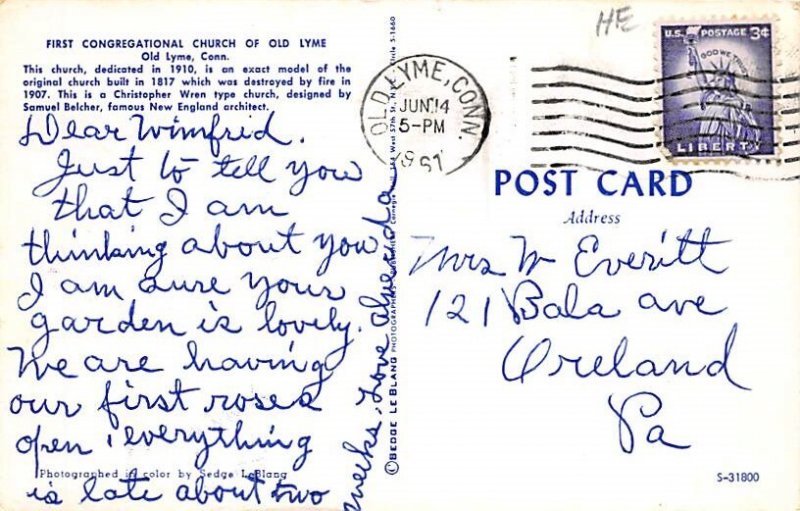 FIRST CONGREGATIONAL CHURCH OF OLD LYME
Old Lyme, Conn.
This church, dedicated in 1910, is an exact model of the
original church built in 1817 which was destroyed by fire in
1907. This is a Christopher Wren type church, designed by
Samuel Belcher, famous New England architect.
Dear Winfrid.
Just to tell you
that I am
thinking about you
I am sure your
garden is lovely.
We are having
our first roses
open, everything
Photographed in color by Sedge LeBlang
is late about two
weeks. Love
© SEDGE LE BLANG PHOTOGRAPHERS
S-1660
OLD LYME, CONN.
JUN 14
5-PM
1961
HE
U.S. POSTAGE 3¢
IN GOD WE TRUST
LIBERTY
POST CARD
Address
Mrs W Everitt
121 Bala ave
Oreland
Pa
S-31800